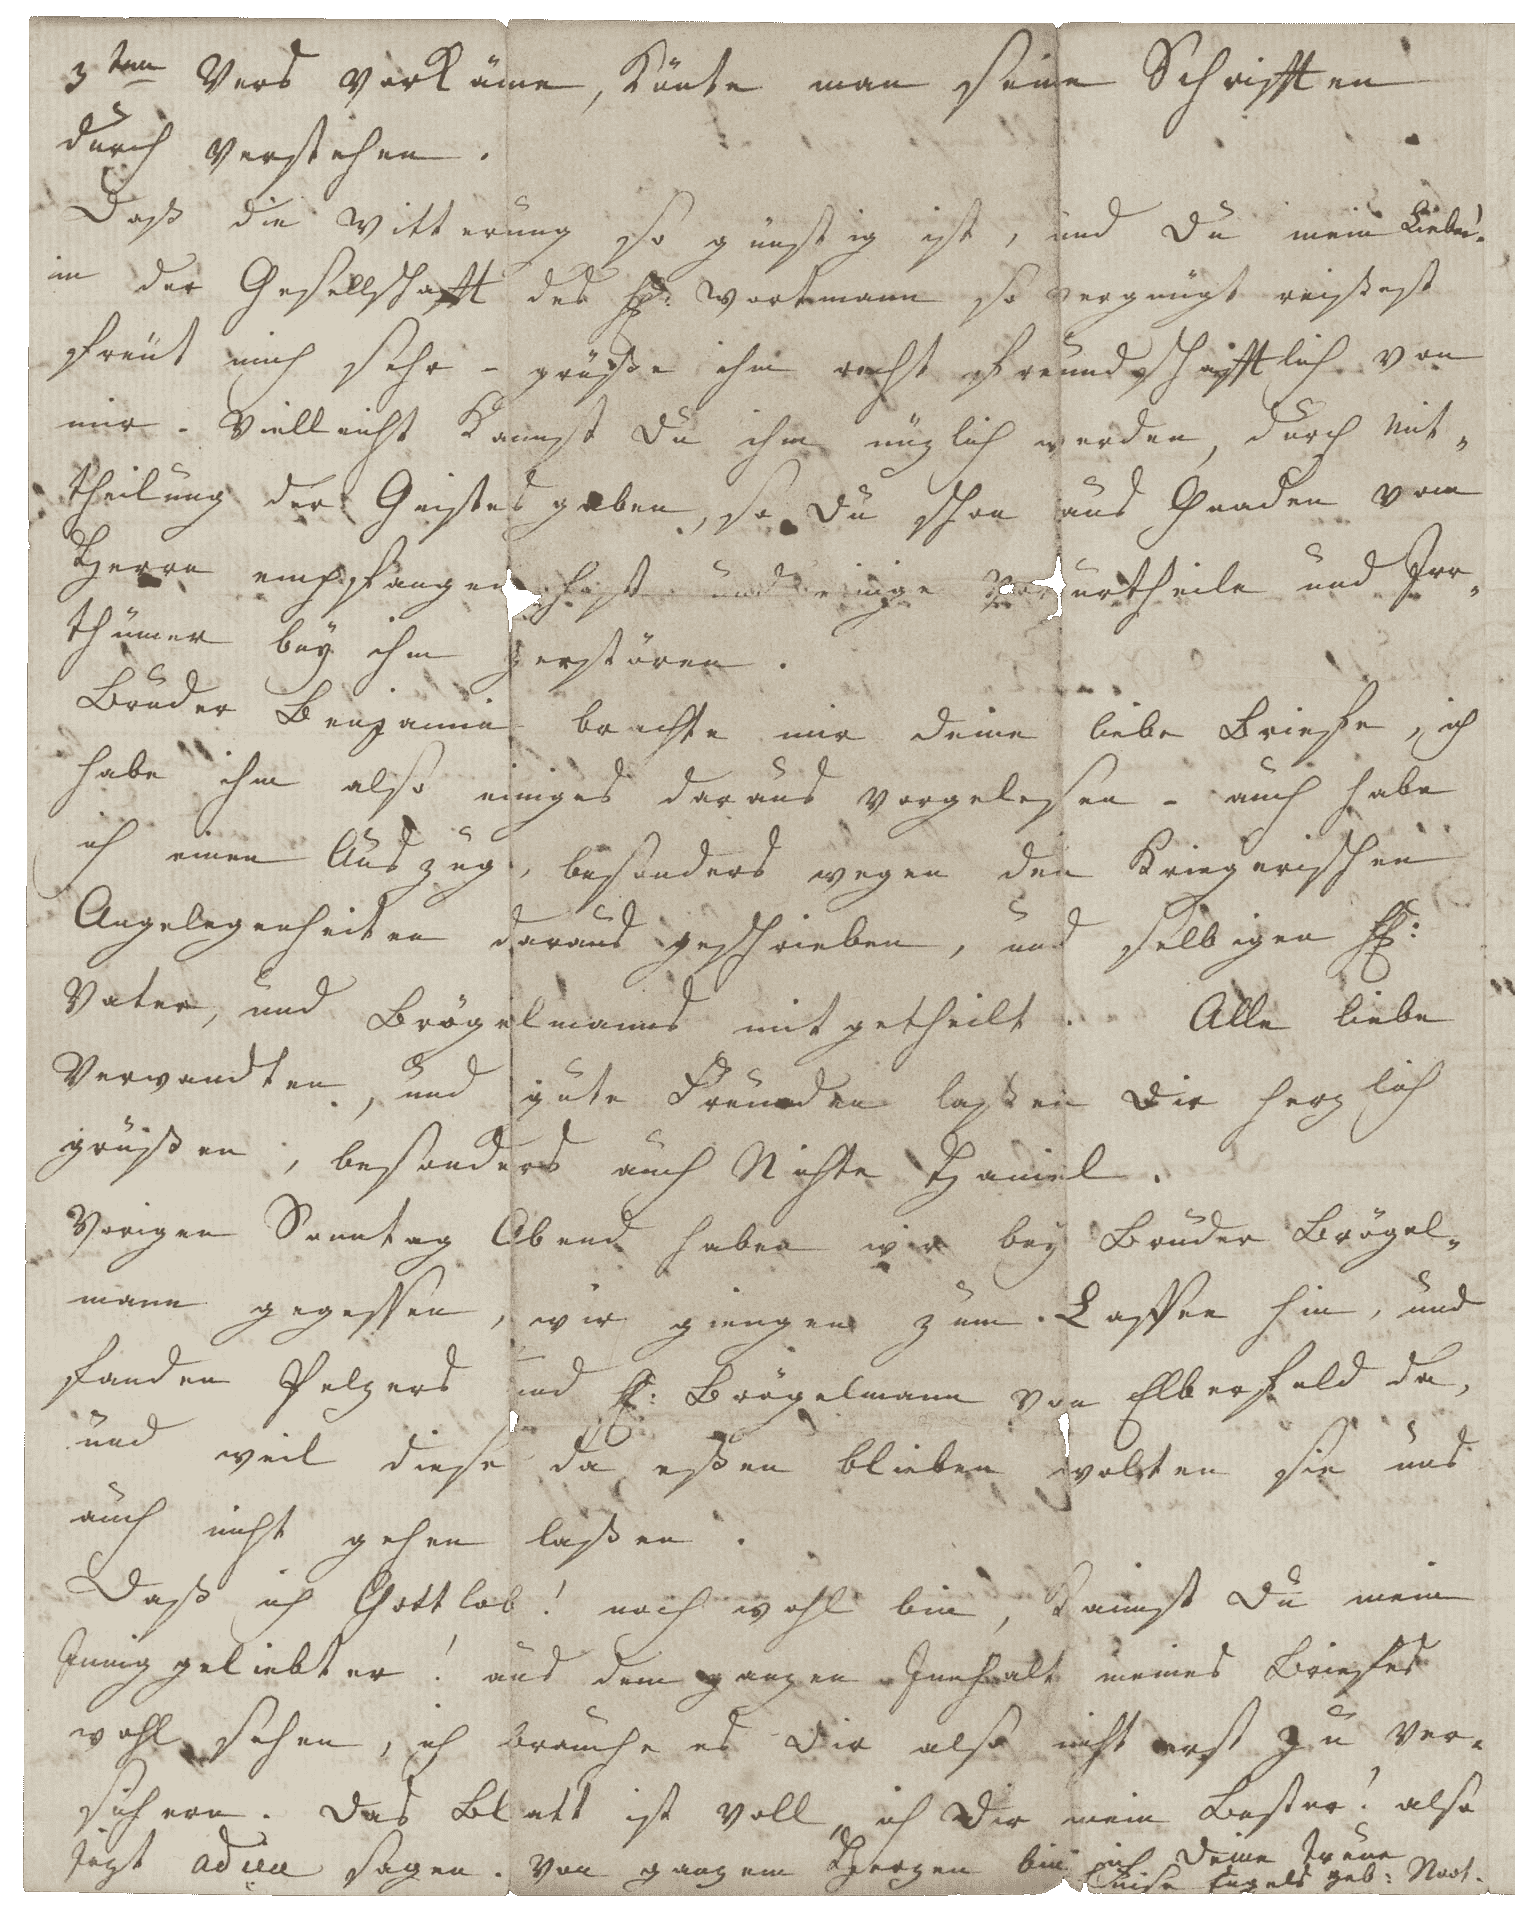 3ten Vers vorkäme, könte man seine Schrifften
durch verstehen.
Daß die Witterung so günstig ist, und Du mein Lieber!
in der Gesellschafft des H: Wortmann so vergnügt reißest
freüt mich sehr – grüße ihm recht freundschafftlich von
mir – Vielleicht kannst Du ihm nüzlich werden, durch Mit-
theilung der Geistes gaben, so Du schon aus Gnaden vom
Herrn empfangen hast und einige Vorurtheile und Irr-
thümer bey ihm zerstören.
Bruder Benjamin brachte mir deine liebe Briefe, ich
habe ihm also einiges daraus vorgelesen – auch habe
ich einen Auszug, besonders wegen den Kriegerischen
Angelegenheiten daraus geschrieben, und selbigen H:
Vater, und Brögelmanns mitgetheilt. Alle liebe
Verwandten, und gute Freunden laßen Dir herzlich
grüßen, besonders auch Nichte Haniel.
Vorigen Sonntag Abend haben wir bey Bruder Brögel-
mann gegessen, wir giengen zum Caffee hin, und
fanden Pelzers und H: Brögelmann von Elberfeld da,
und weil diese da eßen blieben wolten sie uns
auch nicht gehen laßen.
Daß ich Gottlob! noch wohl bin, kannst Du mein
Innig geliebter! aus dem ganzen Innhalt meines Briefes
wohl sehen, ich brauche es Dir also nicht erst zu ver-
sichern. Das Blatt ist voll, ich Dir mein Bester! also
jezt adieu sagen. Von ganzem Herzen bin ich Deine treue
Luise Engels geb: Noot.